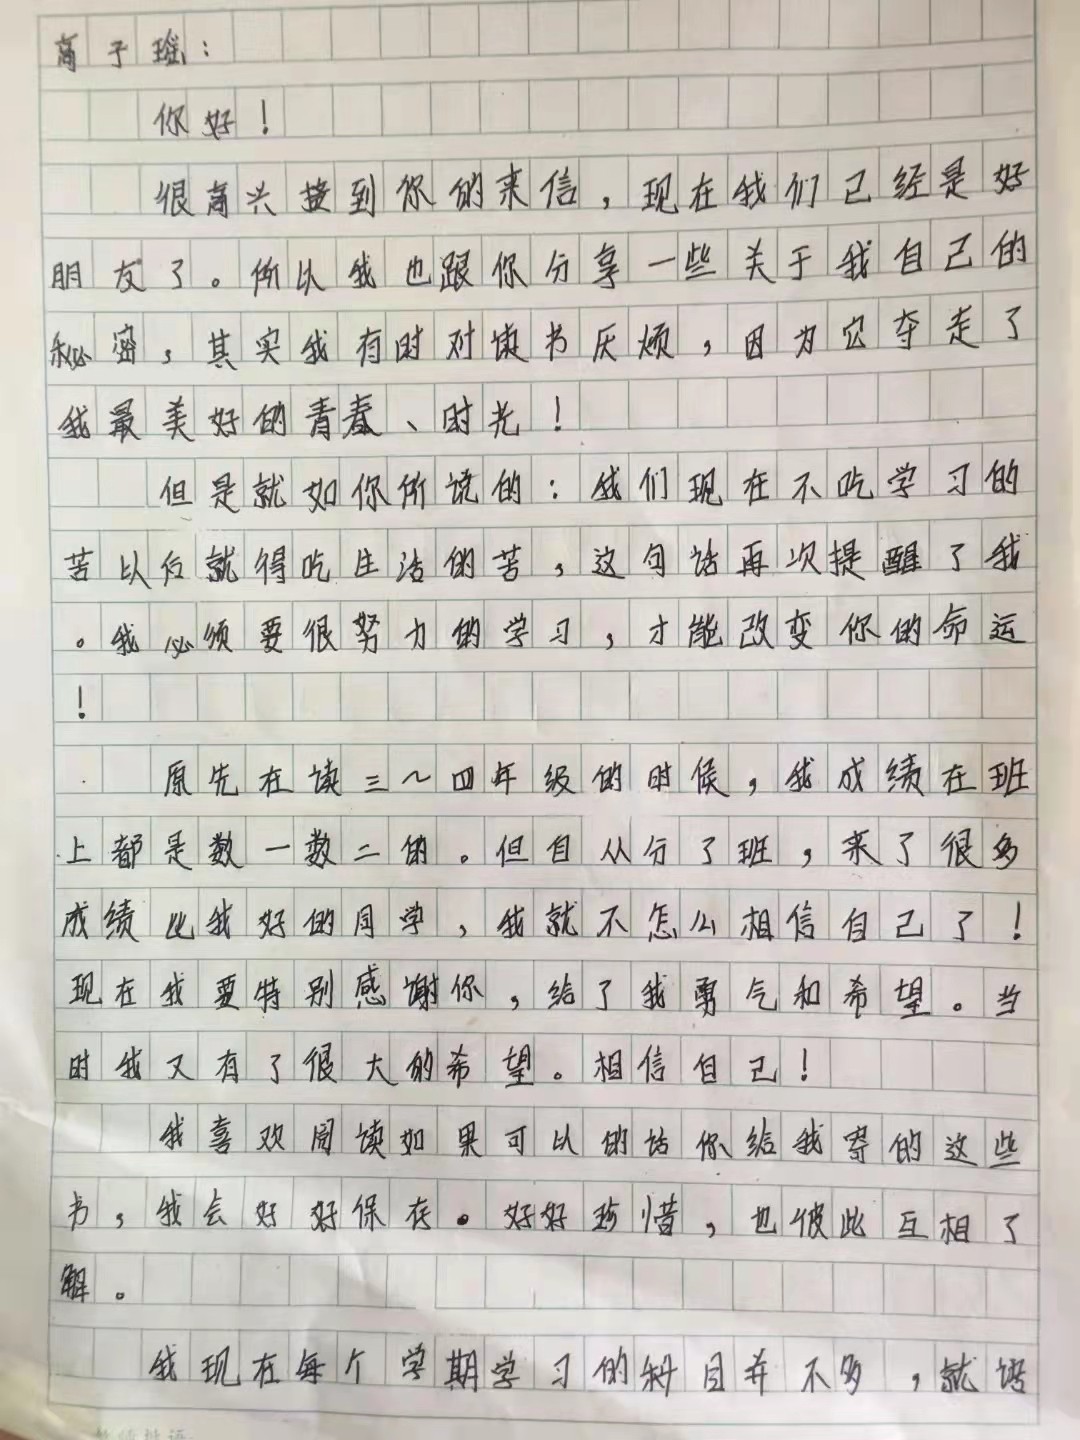 高子瑶：
你好！
很高兴接到你的来信，现在我们已经是好
朋友了。所以我也跟你分享一些关于我自己的
秘密，其实我有时对读书厌烦，因为它夺走了
我最美好的青春、时光！
但是就如你所说的：我们现在不吃学习的
苦以后就得吃生活的苦，这句话再次提醒了我
。我必须要很努力的学习，才能改变你的命运
！
原先在读三～四年级的时候，我成绩在班
上都是数一数二的。但自从分了班，来了很多
成绩比我好的同学，我就不怎么相信自己了！
现在我要特别感谢你，给了我勇气和希望。当
时我又有了很大的希望。相信自己！
我喜欢阅读如果可以的话你给我寄的这些
书，我会好好保存。好好珍惜，也彼此互相了
解。
我现在每个学期学习的科目并不多，就语